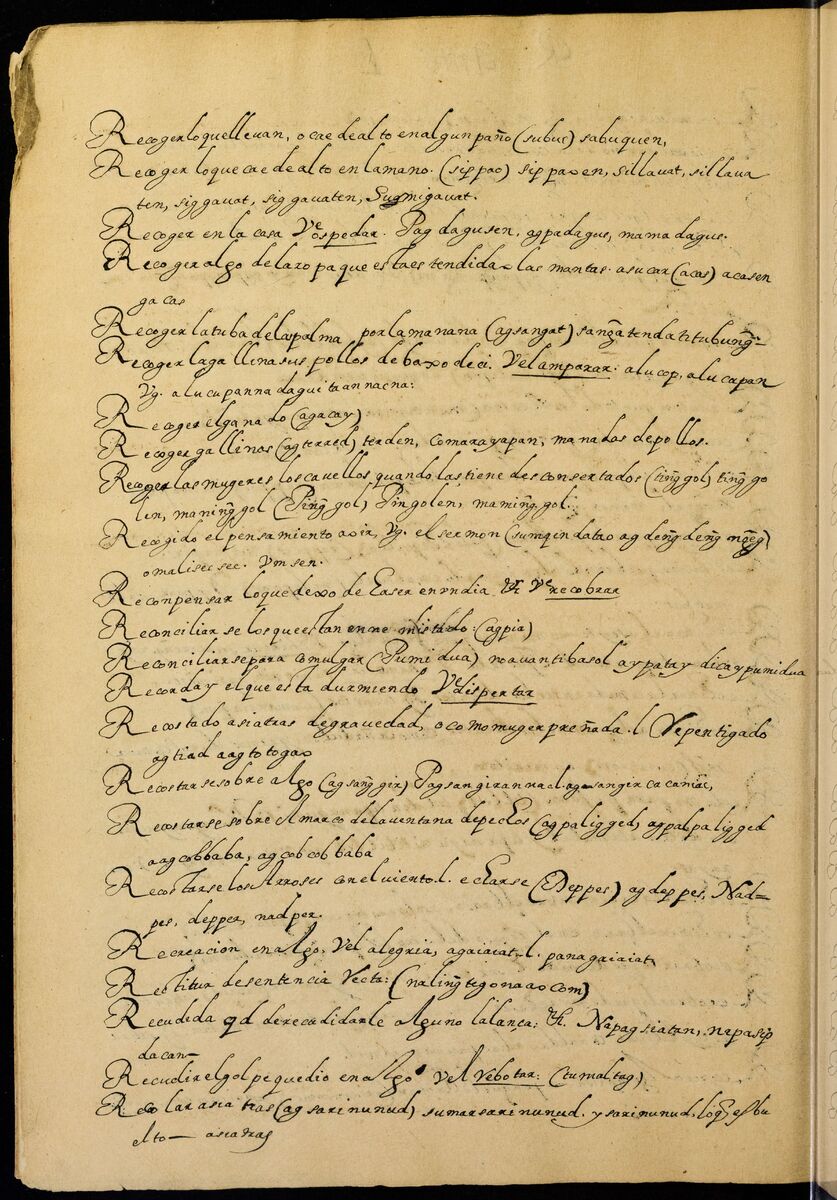 Recoger lo que lleuan, o cae de alto en algun paño (subuc) sabuquen,
Recoger lo que cae de alto en la mano. (sippao) sippaoen, sillavat, sillaua
ten, siggavat, siggavaten, Sugmigavat.
Recoger en la casa Ve ospedar. Pag dagusen, agpadagus, mamadagus.
Recoger algo de la ropa que esta estendida o las mantas. asucar (acas) acasen
gacas
Recoger la tuba de la palma por la manana (agsangat) sang̃atenda ti tubung̃.
Recoger la gallina sus pollos debaxo de ci. Vel amparar. alucop, alucapan
Vg. alucupanna daguita annacna:
Recoger el ganado (agacay)
Recoger gallinas (agterred) terden, comarayapan, manadas de pollos.
Recoger las mugeres los cavellos quando las tiene desconsertados (ting̃gol) ting̃go
len, maning̃gol (Ping̃gol) Pingolen, maming̃gol.
Recogido el pensamiento a oir, Vg. el sermon (sumqindatao agdeng̃deng̃eg)
omalisec sec. Vmsen.
Reconpensar lo que dexo de Easer en vn dia Ve recobrar
Reconciliarse los que estan enne mistado: (agpia)
Reconciliarse para comulgar (Pumidua) no avanti basol ay patay dica y pumidua
Recorday el que esta durmiendo Ve dispertar
Recostado asia tras de gravedad, o como muger preñada .l. Repentigado
agtiad aagtotogao
Recostarse sobre algo (agsang̃gir) Pagsangirannad. agsangir ca caniac,
Recostarse sobre el marco de la ventana de pecEos (agpaligged, agpalpaligged
aagcobbaba, agcobcobbaba
Recostarse los Arroses con el viento .l. ecEarse (Deppes) agdeppes, Nad=
pes, depper, nadper.
Recreacion en algo, Vel alegria, agaiaiat .l. panagaiaiat
Rectitur de sentencia Recta: (naling̃teg ona aocom)
Recudida qd de recudidarle alguno la lança: Napagsiatan, napasip
dacan—
Recudir el golpe que dio en algo Vel Rebotar: (tumaltag)
Recolar asia tras (agsarinunud) sumarsarinunud. y sarinunud, loq̃ es bu
elto — asiatras